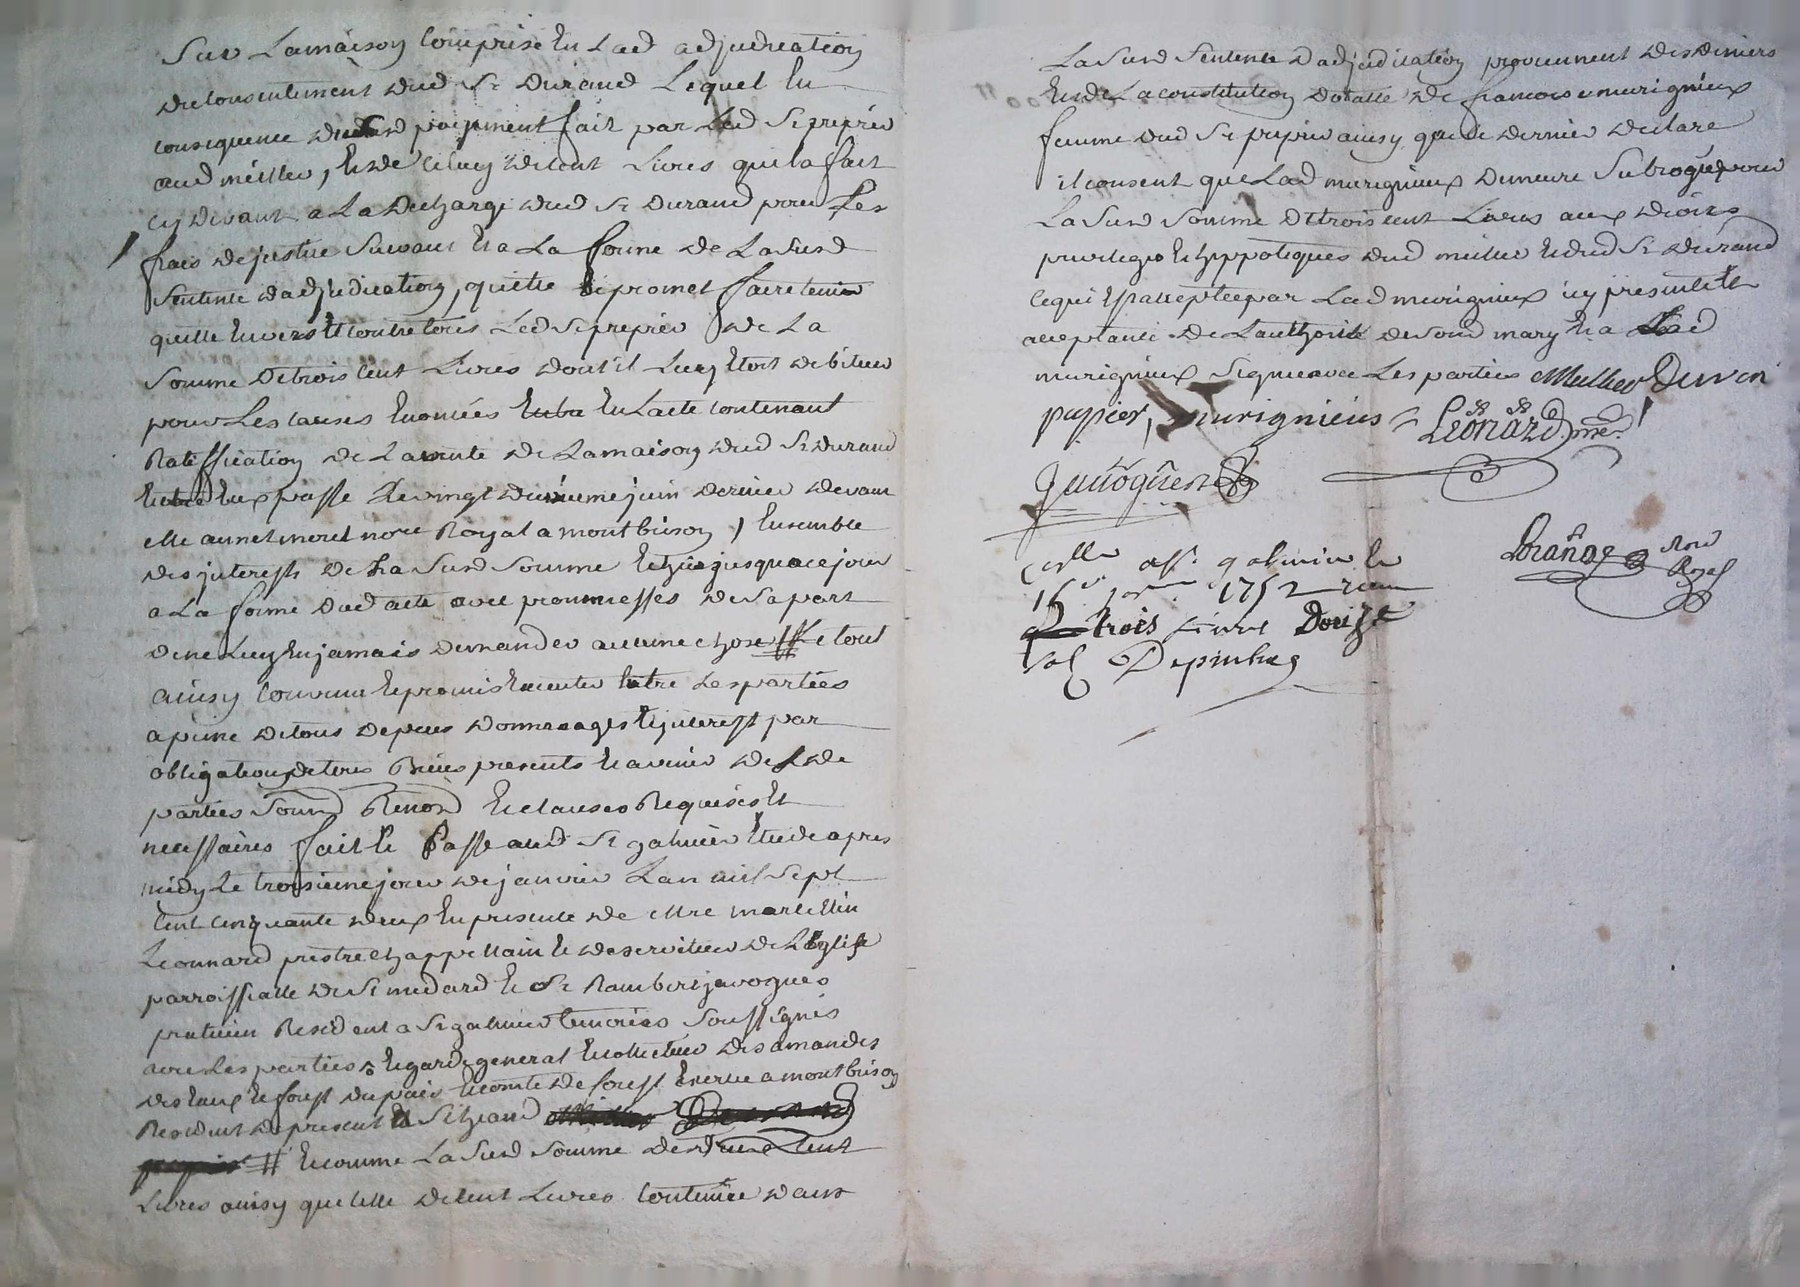 Sur Lamaison Comprise En Lad adjudication
du Consentement dud Sr Durand Lequel En
consequence dud paiement fait par Led Sr prepier
aud meiller, et de Celuy de Cent Livres quil a fait
Cy devant a La decharge dud Sr Durand pour Les
frais de justice Suivant Et a La forme de La Susd
Sentence dadjudication, quitte Et promet faire tenir
quitte Envers Et Contre tous Led Sr prepier de La
Somme de trois Cent Livres dont il Luy Etoit debiteur
pour Les Causes Enoncées En Lacte Contenant
Ratiffication de La vente de Lamaison dud Sr Durand
Entre Eux passe Le vingt deuxieme juin dernier devant
notre Royal a montbrison, Ensemble
des jnterests de La Susd Somme Echus jusqua ce jour
a La forme dud acte avec promesses de Sa part
de ne Luy En jamais demander aucune chose # Le tout
ainsy Convenu Et promis Executer Entre Les parties
a peine de tous depens dommages Et jnterest par
obligation de tous Biens presents Et avenir desd
parties Soumd Renond Et Clauses Requises Et
necessaires fait Et Passe aud St galmier Etude apres
midy Le troisieme jour de janvier Lan mil Sept
Cent Cinquante deux En presence de Mre marcellin
Leonnard prestre Chappellain Et deserviteur de L'Eglise
parroissialle de St medard Et de Sr Rambert javogues
praticien Resident a St galmier temoins Soussignés
avec Les parties Et garde general Et Collecteur des amandes
des Eaux Et forest du pais Et Comté de forest Exercee a montbrison
Resident de present a St heand
# Et Comme La Susd Somme de deux Cent
Livres ainsy que Celle de Cent Livres Contenüe dans
La Susd Sentence dadjudication proviennent des deniers
Et de La constitution dotalle de francoise murignieux
femme dud Sr prepier ainsy que Ce dernier declare
il consent que Lad murignieux demeure Subrogée pour
La Susd Somme de trois cent Livres aux droits
privileges Et hyppoteques dud meiller Et dud Sr durand
Ce qui Est accepte par Lad murigneux icy presente Et
acceptante de Lauthorité de Sond mary Et a Lad
murignieux Signe avec Les parties Meillier Duran
papier, murignieus Leonard pre
Javogues
Collé a St galmier le
16e janer 1752 recu
trois Livre Douze
Sol Depinhes
Nore
Royal